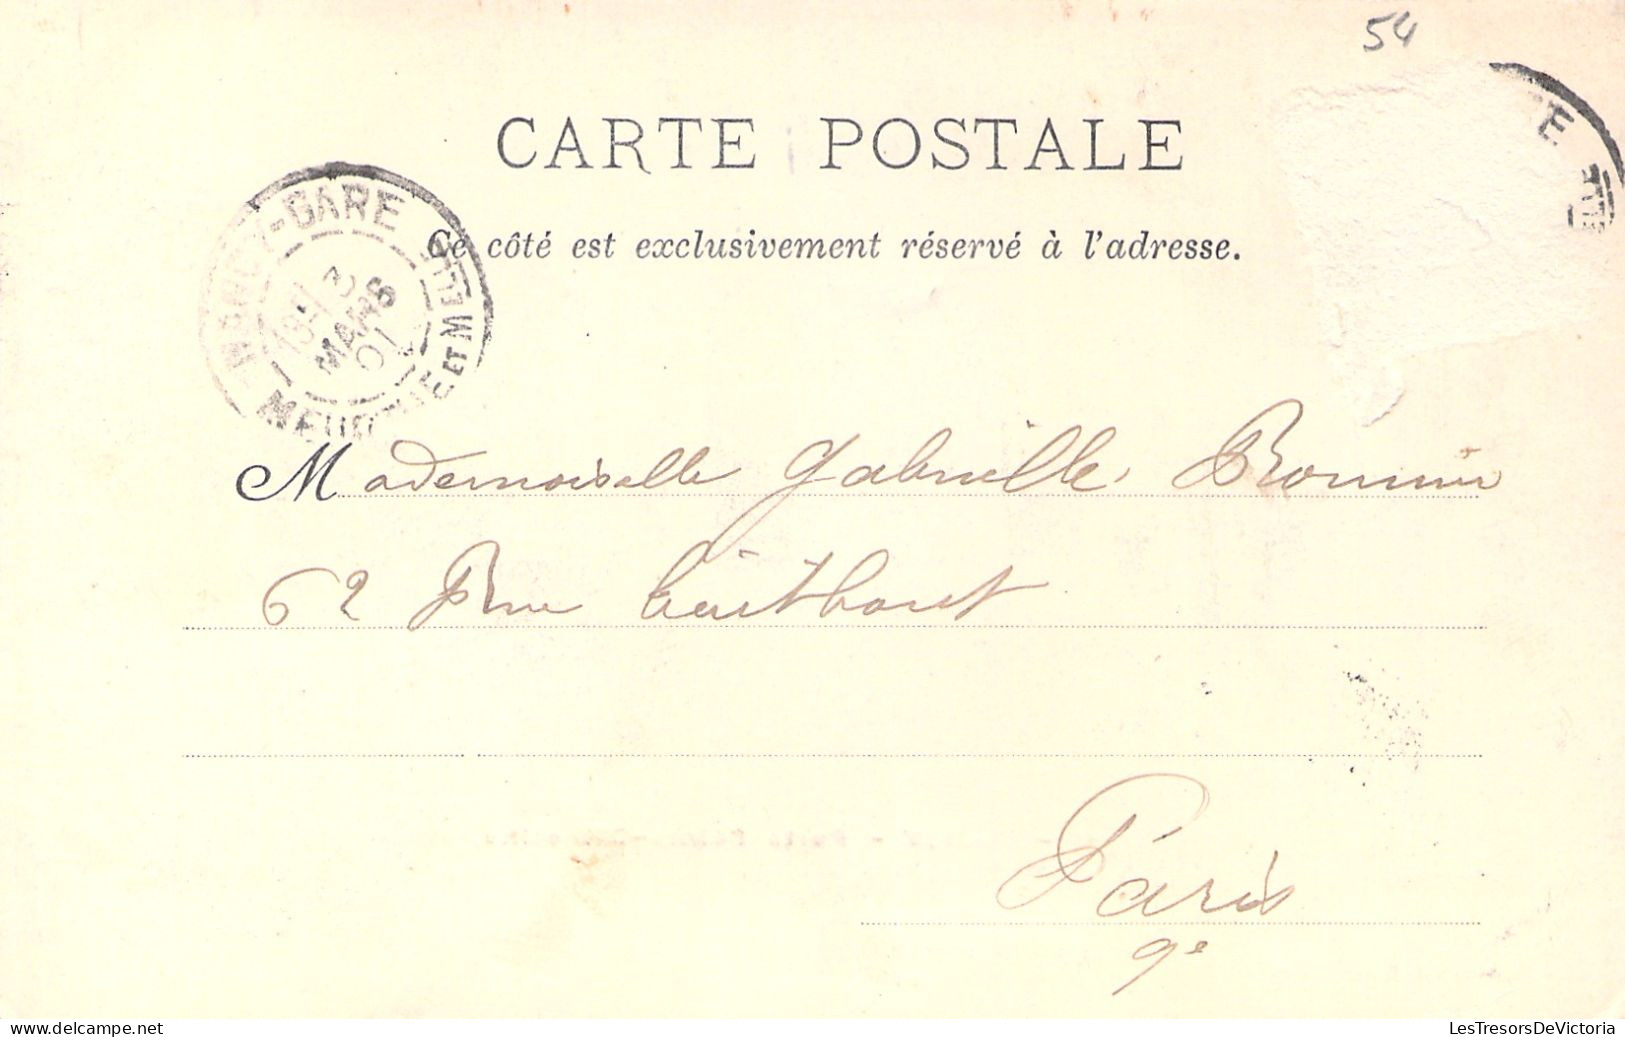 54
CARTE POSTALE
Ce côté est exclusivement réservé à l'adresse.
NANCY-GARE
3
MARS
01
MEURTHE ET MLLE
Mademoiselle Gabrielle
62 Rue
Paris
9e
www.delcampe.net
LesTresorsDeVictoria